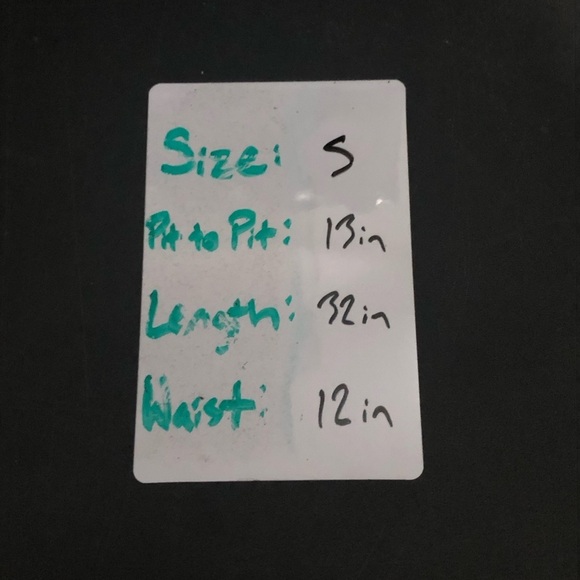 Size: S
Pit to Pit: 13in
Length: 32in
Waist: 12in